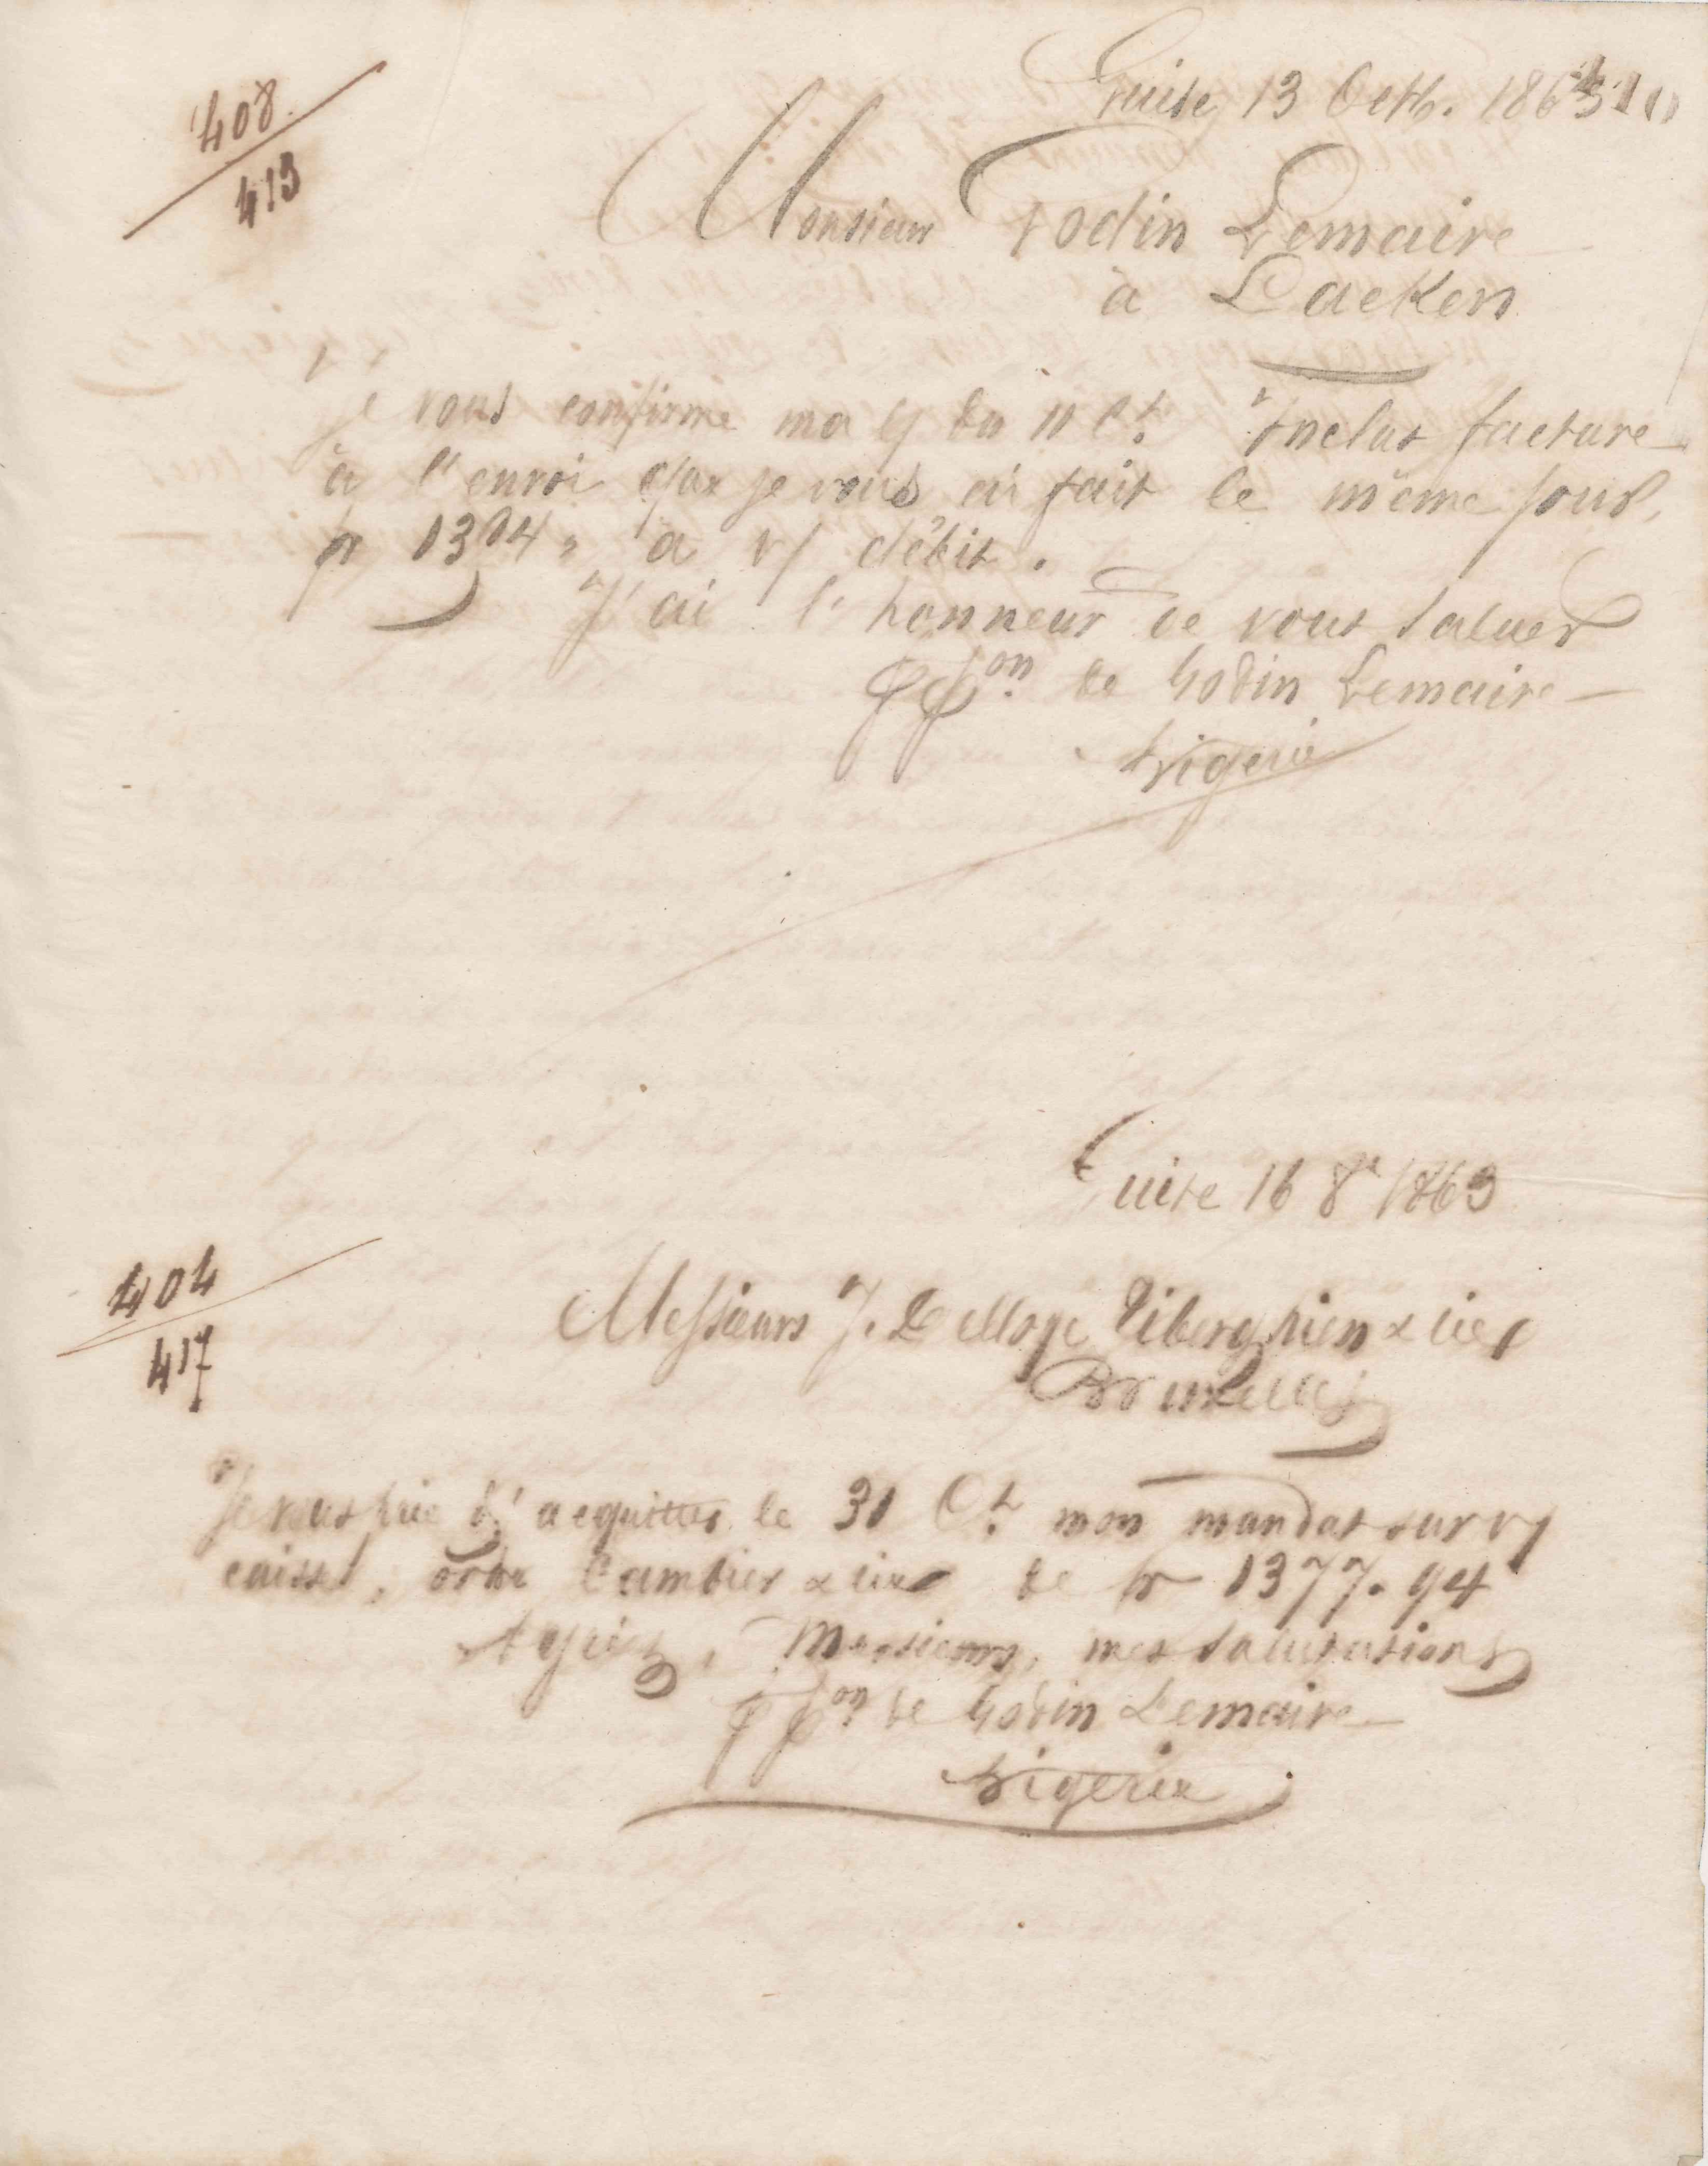 Guise 13 Octb. 1863 410
408
413
Monsieur Godin Lemaire
à Laeken
Je vous confirme ma l/ du 11 Ct. Inclus facture
à l'envoi que je vous ai fait le même jour,
fr 1304 " à v/ débit.
J'ai l'honneur de vous saluer
ppon de Godin Lemaire
Guise 16 8e 1863
404
417
Messieurs J. Delloye Tiberghien & Cie
Bruxelles
Je vous prie d'acquitter le 31 Ct mon mandat sur v/
caisse, ordre Cambier & Cie de fr 1377.94
Agréez, Messieurs, mes salutations
ppon de Godin Lemaire